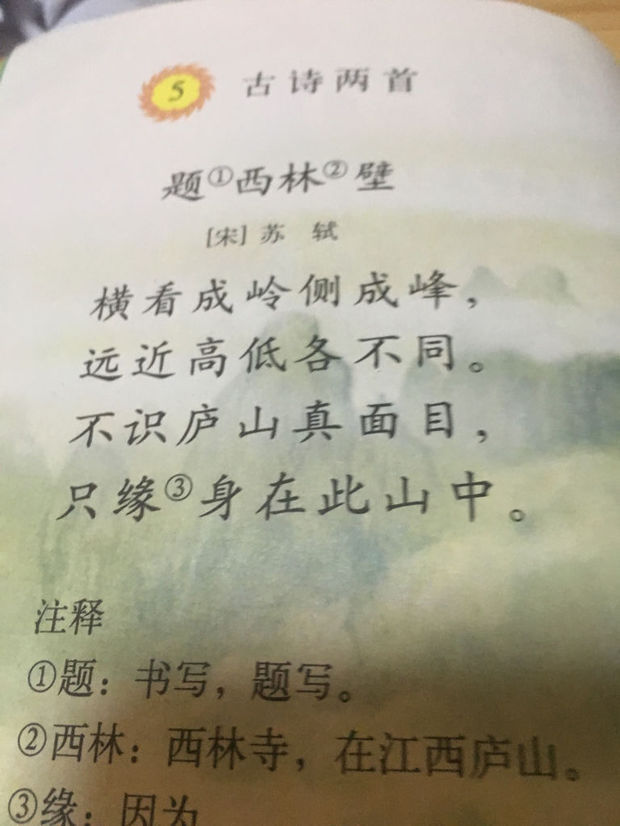 5 古诗两首
题①西林②壁
[宋] 苏 轼
横看成岭侧成峰，
远近高低各不同。
不识庐山真面目，
只缘③身在此山中。
注释
①题：书写，题写。
②西林：西林寺，在江西庐山。
③缘：因为